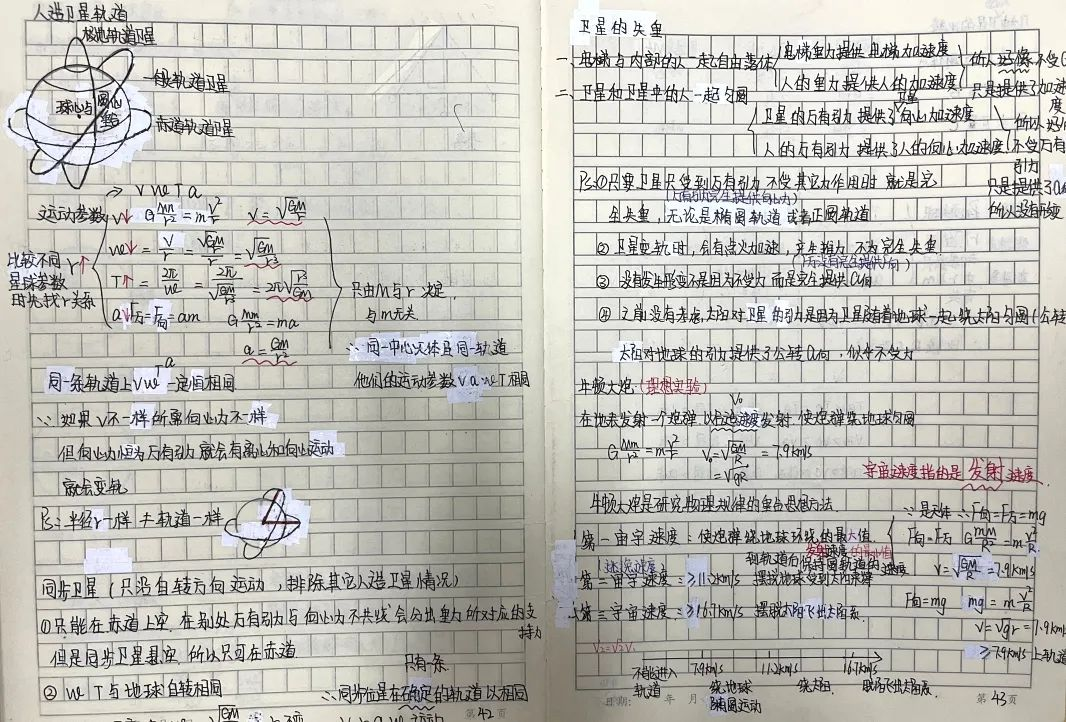 人造卫星轨道
极地轨道卫星
一般轨道卫星
球心与圆心重合
赤道轨道卫星
→ v w T a
运动参数 v↓ G Mm/r² = m v²/r v = √(GM/r)
w↓ = v/r = √(GM/r)/r = √(GM/r³)
比较不同 r↑
星球参数
时先找r关系
T↑ = 2π/w = 2π/√(GM/r³) = 2π√(r³/GM)
a↓ F万 = F向 = am G Mm/r² = ma
a = GM/r²
只由M与r决定,
与m无关
∴ 同一中心天体且同一轨道
他们的运动参数 v a w T 相同
同一条轨道上 v w T a 一定值相同
∵ 如果 v 不一样 所需向心力不一样
但向心力恒为万有引力 就会有离心和向心运动
就会变轨
Ps: 半径r一样 ≠ 轨道一样
同步卫星 (只沿自转方向运动, 排除其它人造卫星情况)
①只能在赤道上空. 在别处万有引力与向心力不共线 会分出重力所对应的支持力
但是同步卫星悬空 所以只可在赤道
② w T 与地球自转相同
只有一条
∴ 同步位星在确定的轨道 以相同
第 42 页
卫星的失重
一、电梯与内部的人一起自由落体
电梯重力提供电梯加速度
人的重力提供人的加速度
所以好像不受G
只是提供了加速度
二、卫星和卫星中的人一起匀圆
卫星的万有引力提供了卫星向心加速度
人的万有引力提供了人的向心加速度
所以好似不受万有引力
只是提供了a向
所以没有形变
Ps: ①只要卫星只受到万有引力 不受其它力作用时 就是完
(万有引力完全提供向心力)
全失重, 无论是椭圆轨道或者正圆轨道
② 卫星变轨时, 会有点火加速, 产生推力 不为完全失重
③ 没有发生形变不是因为不受力 而是完全提供a向
④ 之前没有考虑, 太阳对卫星的引力是因为卫星随着地球一起绕太阳匀圆 (公转)
太阳对地球的引力提供了公转a向, 似乎不受力
牛顿大炮 (理想实验)
V₀
在地表发射一个炮弹 以合适速度发射. 使炮弹绕地球匀圆
G Mm/r² = m v²/r V₀ = √(GM/R) = 7.9km/s
= √gR
宇宙速度指的是发射速度
牛顿大炮是研究物理规律的重要思想方法.
第一宇宙速度: 使炮弹绕地球环绕的最大值.
发射速度的最小值
(环绕速度)
到轨道后保持圆轨道的速度
第二宇宙速度: ≥11.2km/s 摆脱地球受到太阳束缚
第三宇宙速度: ≥16.7km/s 摆脱太阳飞出太阳系
V₂=√2V₁
F向 = F万 = mg
F向 = F万 G mM/R² = m v²/R
v = √(GM/R) = 7.9km/s
F向 = mg mg = m v²/R
v = √gr = 7.9km
≥7.9km/s 上轨道
不能进入轨道 7.9km/s 11.2km/s 16.7km/s
绕地球椭圆运动 绕太阳
日期: 年 月
第 43 页